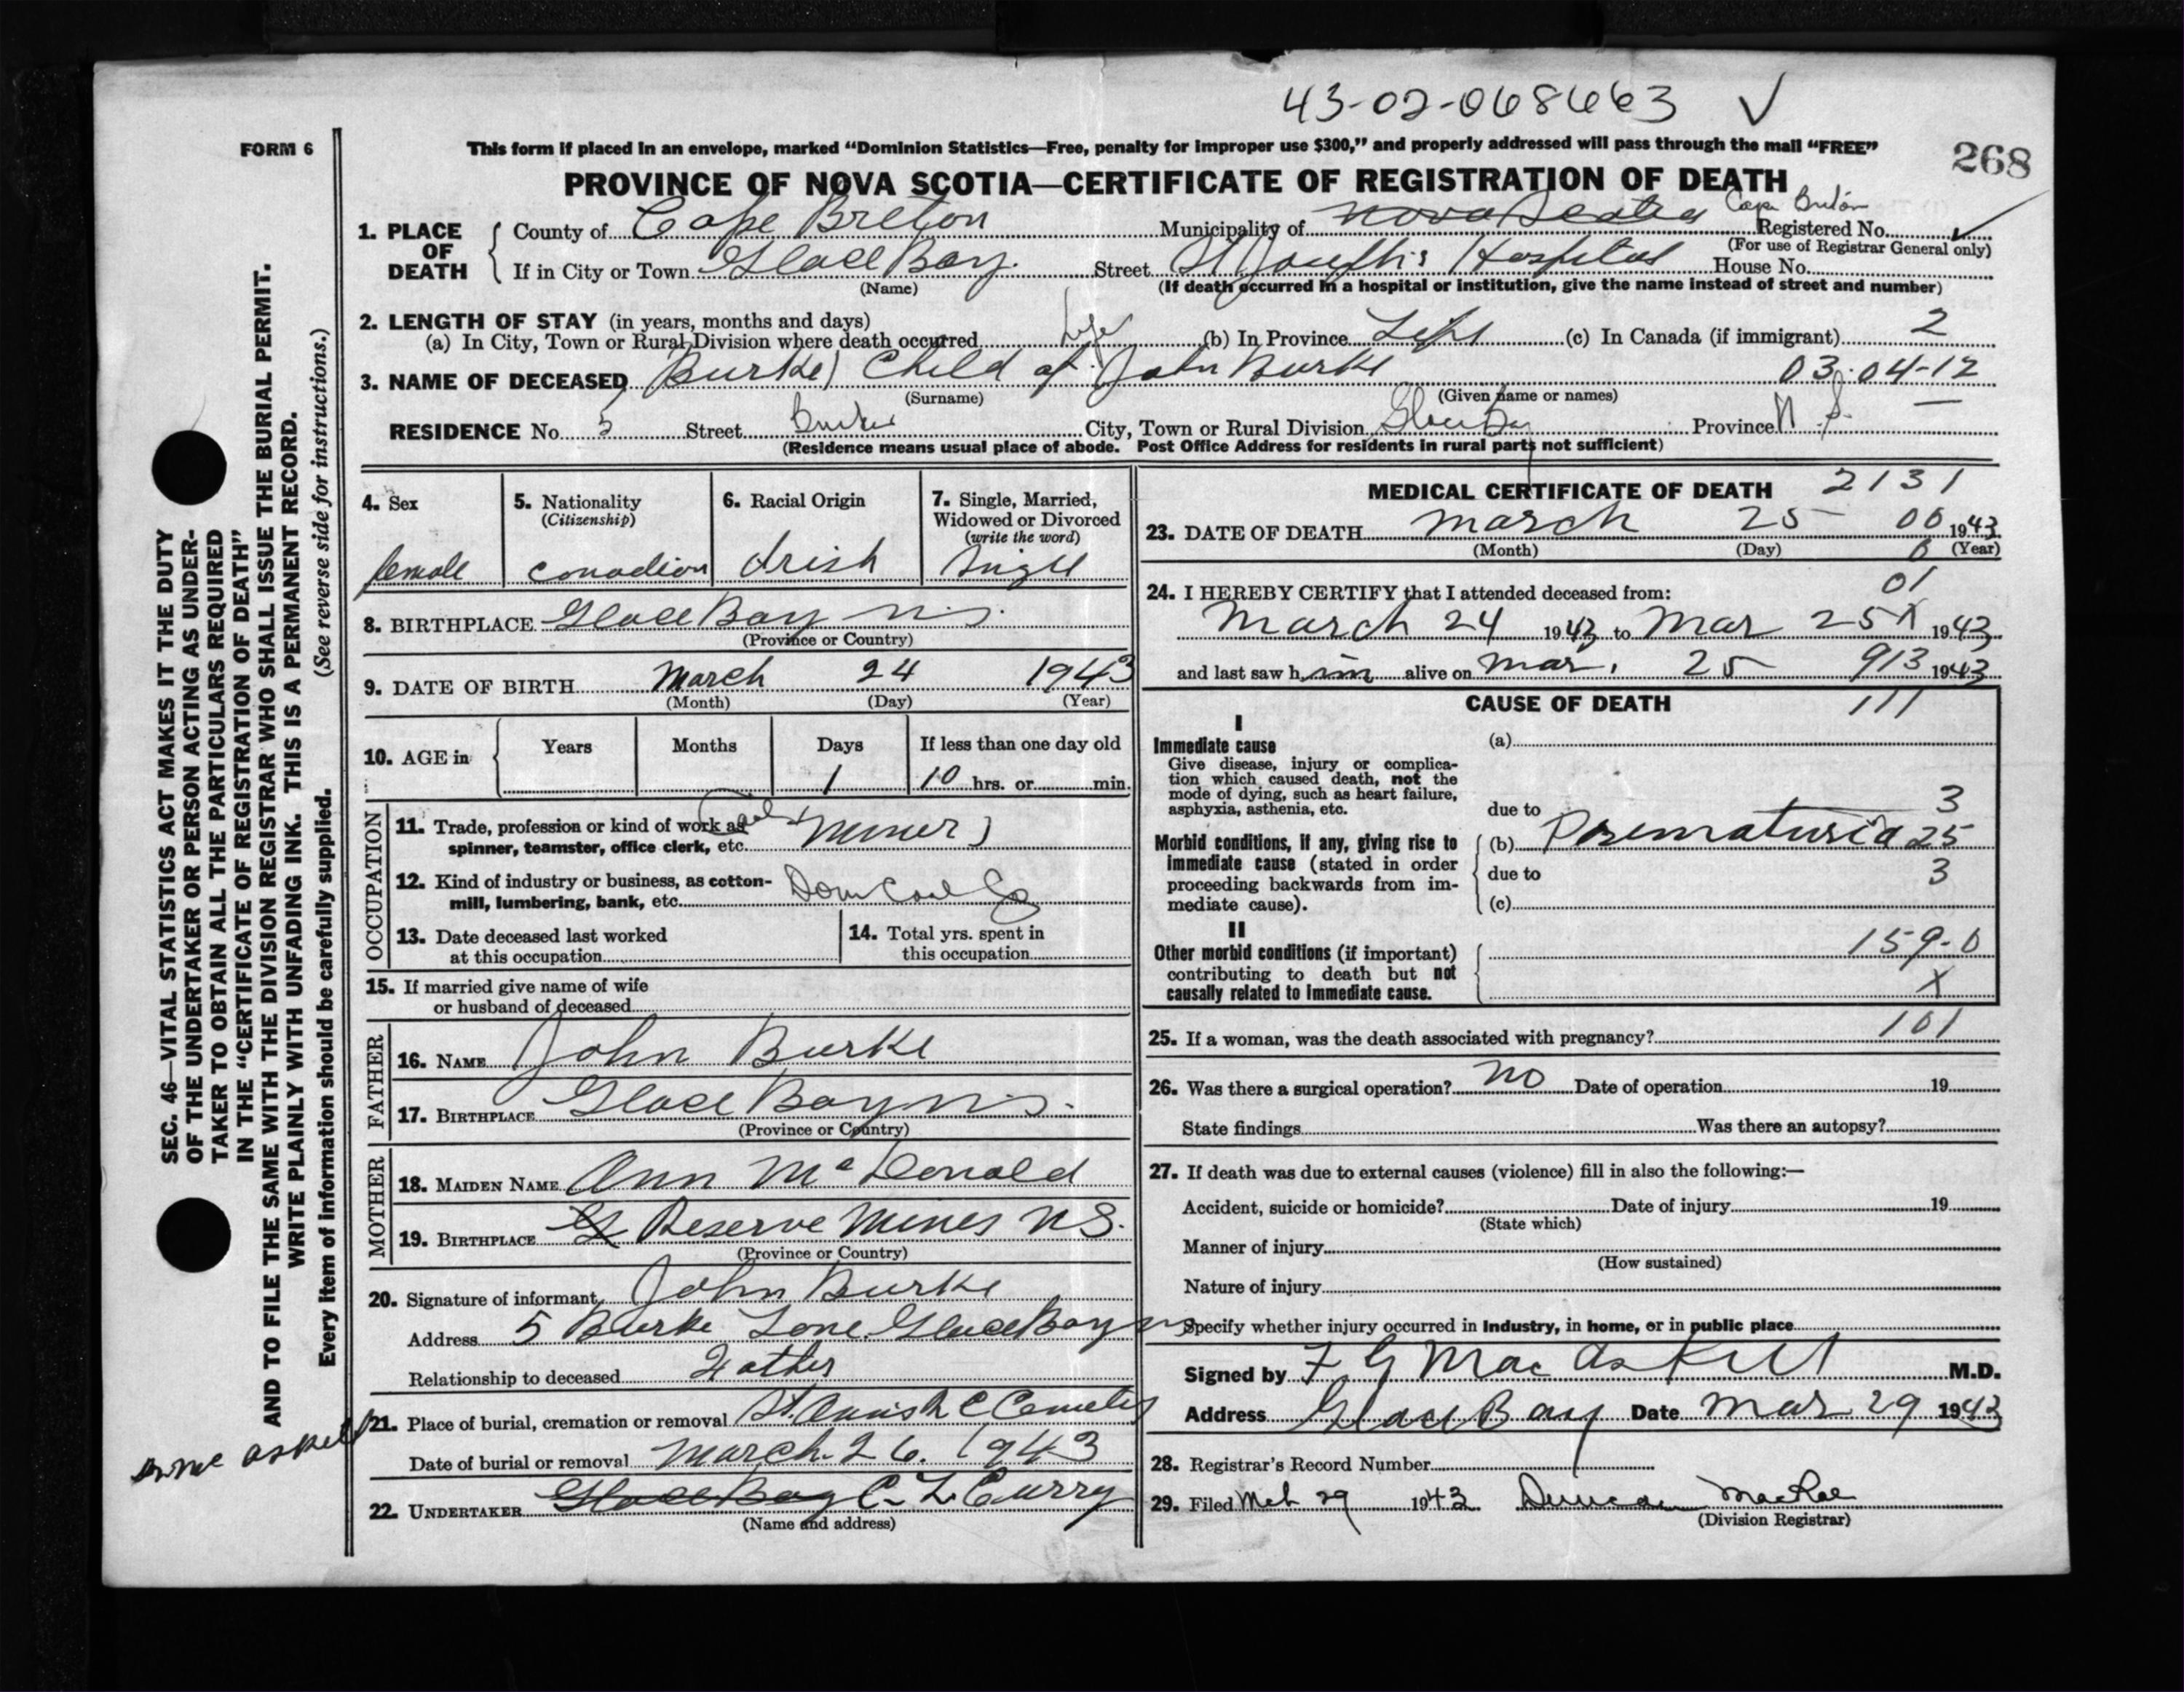 43-02-068663 ✓
FORM 6
This form if placed in an envelope, marked “Dominion Statistics—Free, penalty for improper use $300,” and properly addressed will pass through the mail “FREE”
268
PROVINCE OF NOVA SCOTIA—CERTIFICATE OF REGISTRATION OF DEATH
1. PLACE OF DEATH
County of Cape Breton Municipality of Nova Scotia Cape Breton Registered No.
(For use of Registrar General only)
If in City or Town Glace Bay. Street St Joseph's Hospital House No.
(Name) (If death occurred in a hospital or institution, give the name instead of street and number)
2. LENGTH OF STAY (in years, months and days)
(a) In City, Town or Rural Division where death occurred Life (b) In Province Life (c) In Canada (if immigrant) 2
3. NAME OF DECEASED Burke) Child of John Burke 03-04-12
(Surname) (Given name or names)
RESIDENCE No. 5 Street Burke City, Town or Rural Division Glace Bay Province N.S.
(Residence means usual place of abode. Post Office Address for residents in rural parts not sufficient)
4. Sex
female
5. Nationality
(Citizenship)
Canadian
6. Racial Origin
Irish
7. Single, Married,
Widowed or Divorced
(write the word)
Single
8. BIRTHPLACE Glace Bay N.S.
(Province or Country)
9. DATE OF BIRTH March 24 1943
(Month) (Day) (Year)
10. AGE in
Years Months Days If less than one day old
1 10 hrs. or min.
OCCUPATION
11. Trade, profession or kind of work as
spinner, teamster, office clerk, etc. Miner)
12. Kind of industry or business, as cotton-
mill, lumbering, bank, etc. Dom Coal Co
13. Date deceased last worked
at this occupation
14. Total yrs. spent in
this occupation
15. If married give name of wife
or husband of deceased
FATHER
16. NAME John Burke
17. BIRTHPLACE Glace Bay N.S.
(Province or Country)
MOTHER
18. MAIDEN NAME Ann McDonald
19. BIRTHPLACE Gl Reserve Mines N S.
(Province or Country)
20. Signature of informant John Burke
Address 5 Burke Lane Glace Bay NS
Relationship to deceased Father
21. Place of burial, cremation or removal St. Ann's R C Cemetery
Date of burial or removal March. 26. 1943
22. UNDERTAKER Glace Bay C. L Curry
(Name and address)
MEDICAL CERTIFICATE OF DEATH 2131
23. DATE OF DEATH March 25 00 1943
(Month) (Day) 6 (Year)
01
24. I HEREBY CERTIFY that I attended deceased from:
March 24 1943 to Mar 25 X 1943
and last saw him alive on Mar. 25 913 1943
CAUSE OF DEATH 111
I
Immediate cause
Give disease, injury or complica-
tion which caused death, not the
mode of dying, such as heart failure,
asphyxia, asthenia, etc.
(a)
due to 3
Morbid conditions, if any, giving rise to
immediate cause (stated in order
proceeding backwards from im-
mediate cause).
(b) Prematuria 25
due to 3
(c)
II
Other morbid conditions (if important)
contributing to death but not
causally related to immediate cause.
159-0
X
25. If a woman, was the death associated with pregnancy? 101
26. Was there a surgical operation? No Date of operation 19
State findings Was there an autopsy?
27. If death was due to external causes (violence) fill in also the following:—
Accident, suicide or homicide? Date of injury 19
(State which)
Manner of injury
(How sustained)
Nature of injury
Specify whether injury occurred in industry, in home, or in public place
Signed by F G MacAskill M.D.
Address Glace Bay Date Mar 29 1943
28. Registrar's Record Number
29. Filed Mch 29 1943 Duncan MacRae
(Division Registrar)
SEC. 46—VITAL STATISTICS ACT MAKES IT THE DUTY
OF THE UNDERTAKER OR PERSON ACTING AS UNDER-
TAKER TO OBTAIN ALL THE PARTICULARS REQUIRED
IN THE “CERTIFICATE OF REGISTRATION OF DEATH”
AND TO FILE THE SAME WITH THE DIVISION REGISTRAR WHO SHALL ISSUE THE BURIAL PERMIT.
WRITE PLAINLY WITH UNFADING INK. THIS IS A PERMANENT RECORD.
Every item of information should be carefully supplied. (See reverse side for instructions.)
Dr Mc Askill